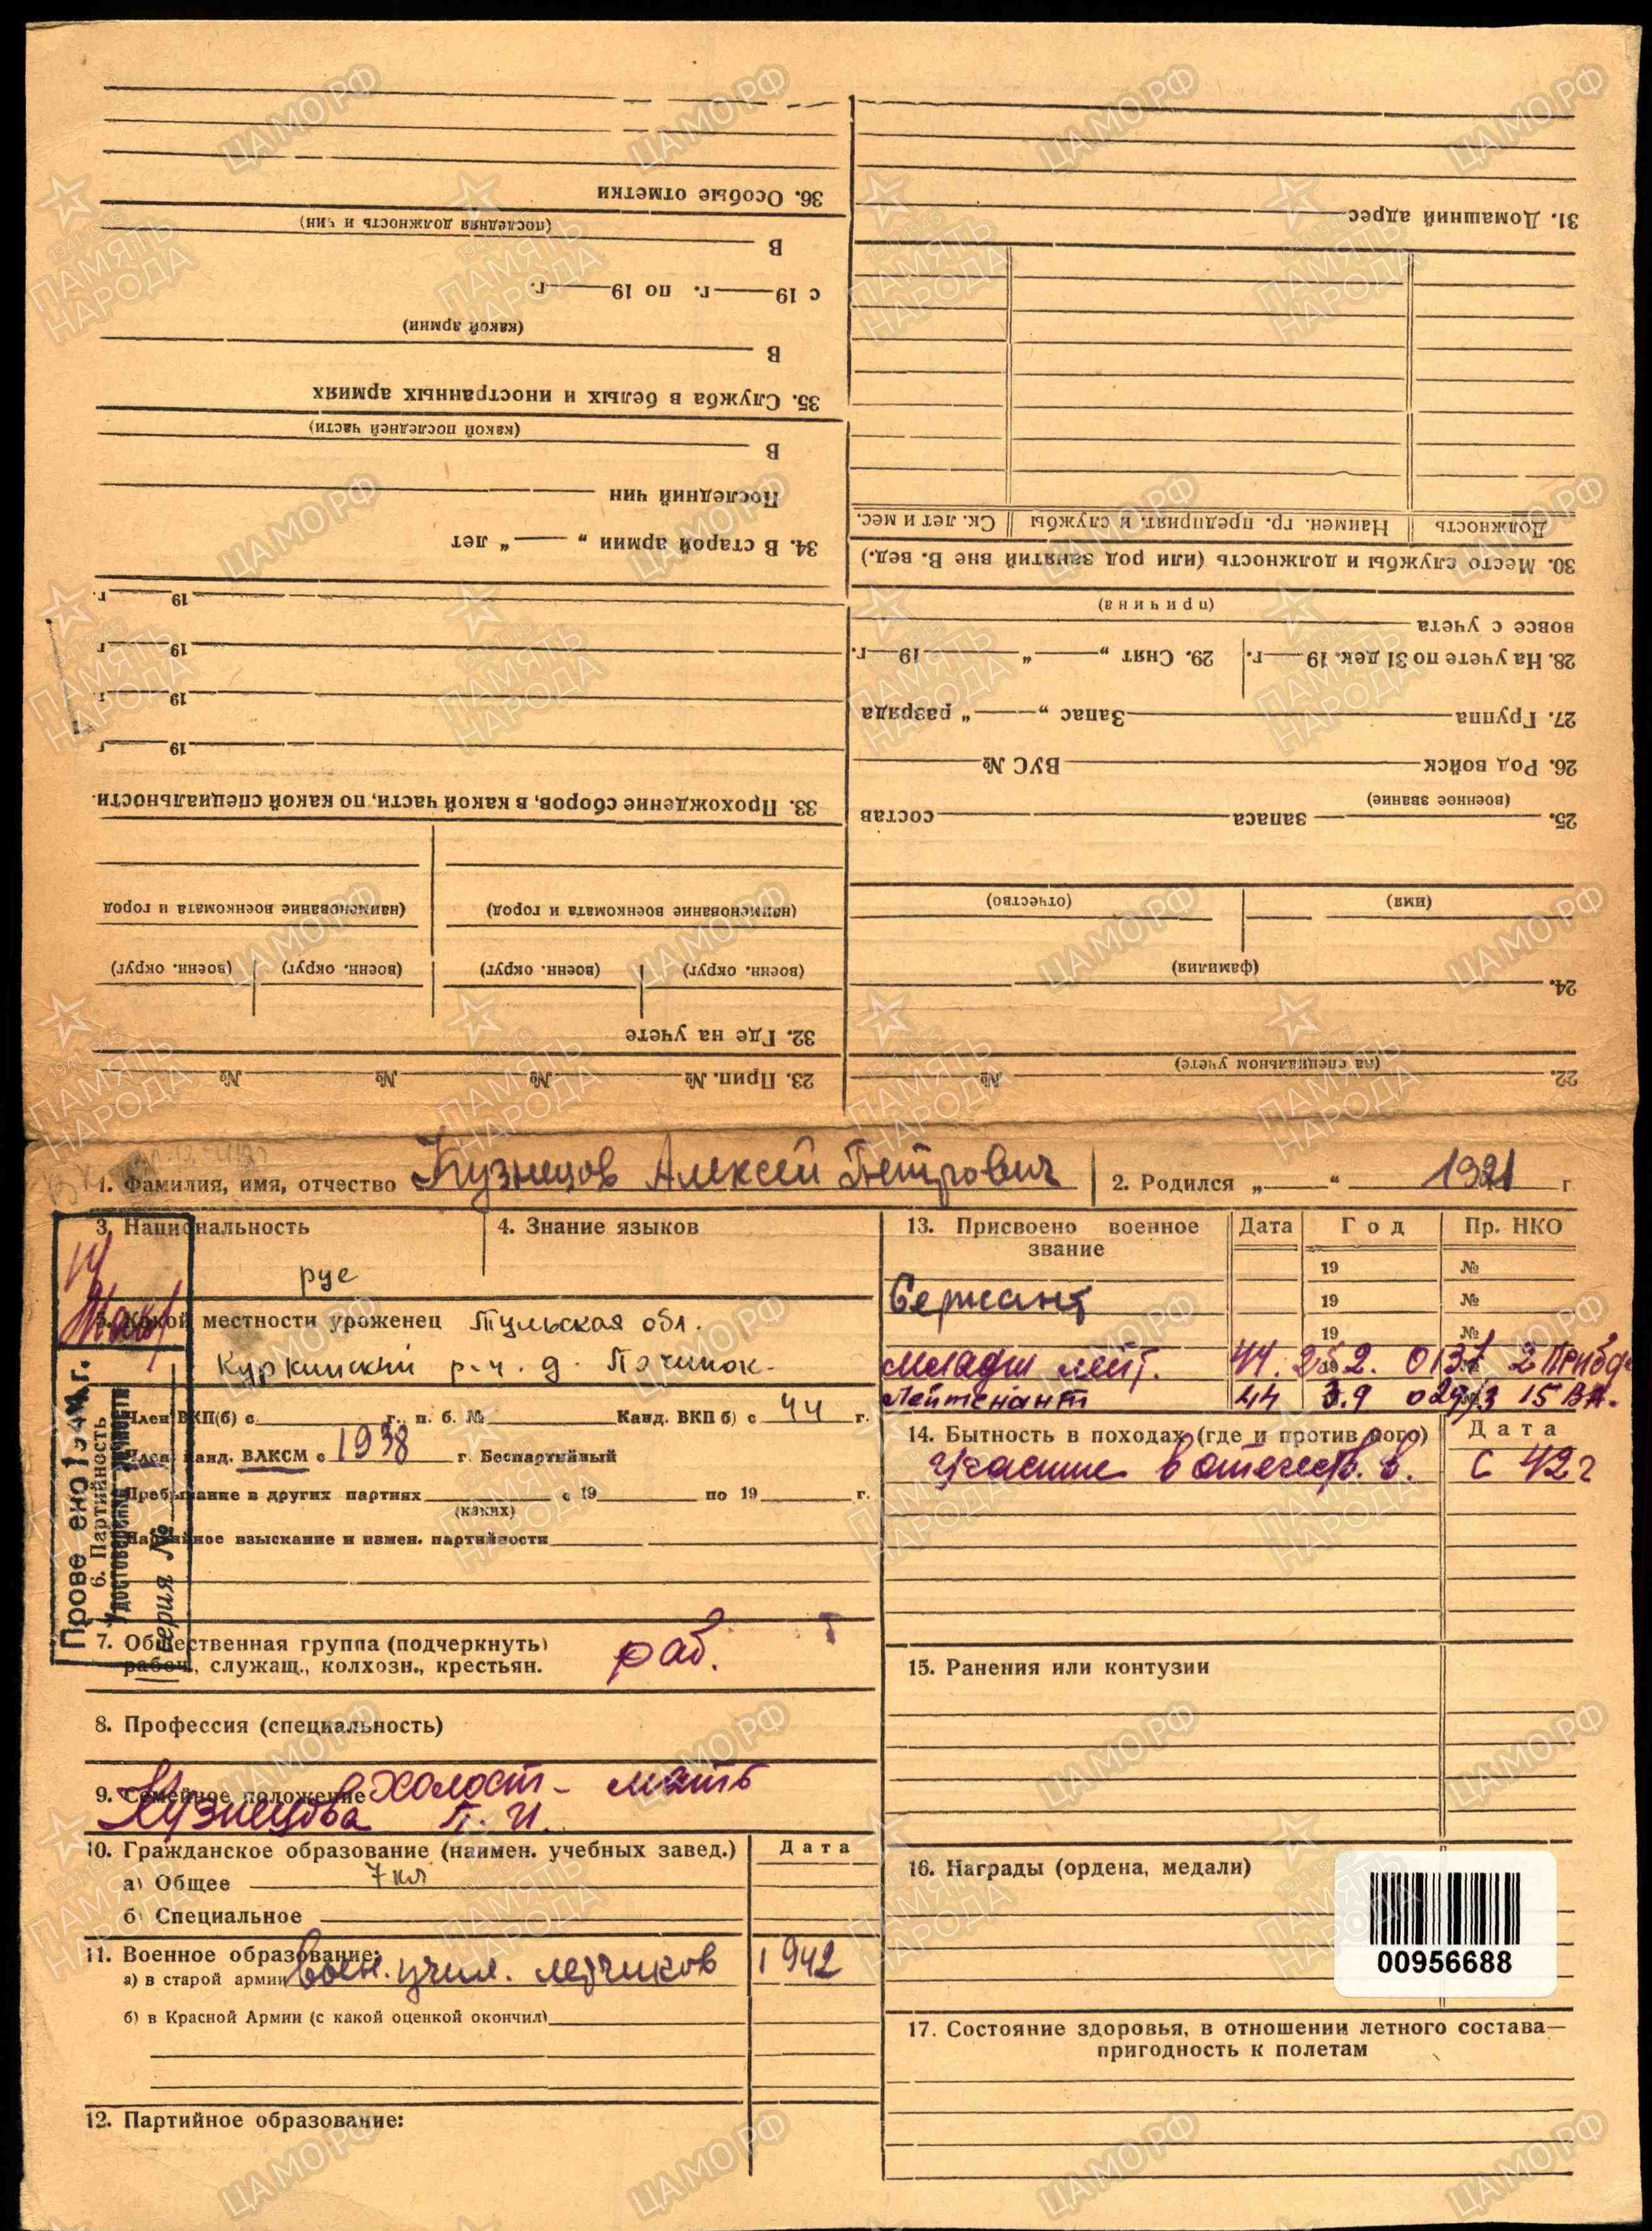 36. Особые отметки
(последняя должность и чин)
В
с 19 г. по 19 г.
(какой армии)
В
35. Служба в белых и иностранных армиях
(какой последней части)
В
Последний чин
34. В старой армии „ “ лет
19 г.
19 г
19 г
19 г
33. Прохождение сборов, в какой части, по какой специальности.
(наименование военкомата и город) (наименование военкомата и город
(военн. округ) (военн. округ) (военн. округ) (военн. округ)
32. Где на учете
23. Прип. № № № №
31. Домашний адрес
Должность Наимен. гр. предприят. и службы Ск. лет и мес.
30. Место службы и должность (или род занятий вне В. вед.)
(причина)
вовсе с учета
28. На учете по 31 дек. 19 г. 29. Снят „ “ 19 г.
27. Группа Запас „ “ разряда
26. Род войск ВУС №
(военное звание)
25. запаса состав
(имя) (отчество)
(фамилия)
24.
(на специальном учете)
22. №
1. Фамилия, имя, отчество Кузнецов Алексей Петрович 2. Родился „ “ 1921 г
3. Национальность 4. Знание языков
рус
5. Какой местности уроженец Тульская обл.
Куркинский р-н. д. Починок.
6. Партийность
Член ВКП(б) с г. п. б. № Канд. ВКП б) с 44 г.
Член канд. ВЛКСМ с 1938 г Беспартийный
Пребывание в других партиях с 19 по 19 г.
(каких)
Партийное взыскание и измен. партийности
Прове ено 194 г.
Удостоверение личности
серия №
7. Общественная группа (подчеркнуть) раб.
рабоч., служащ., колхозн., крестьян.
8. Профессия (специальность)
9. Семейное положение холост - мать
Кузнецова П. И.
10. Гражданское образование (наимен. учебных завед.) Дата
а) Общее 7 кл
б) Специальное
11. Военное образование:
а) в старой армии воен. учил. летчиков 1942
б) в Красной Армии (с какой оценкой окончил)
12. Партийное образование:
13. Присвоено военное звание Дата Год Пр. НКО
19 №
Сержант 19 №
19 №
младш лейт. 44. 2. 0137 2 Прибф
Лейтенант 44 3.9 029/3 15 ВА.
14. Бытность в походах (где и против кого) Дата
Участие в отечеств. в. с 42 г
15. Ранения или контузии
16. Награды (ордена, медали)
00956688
17. Состояние здоровья, в отношении летного состава—
пригодность к полетам
ЦАМО.РФ
ПАМЯТЬ
НАРОДА